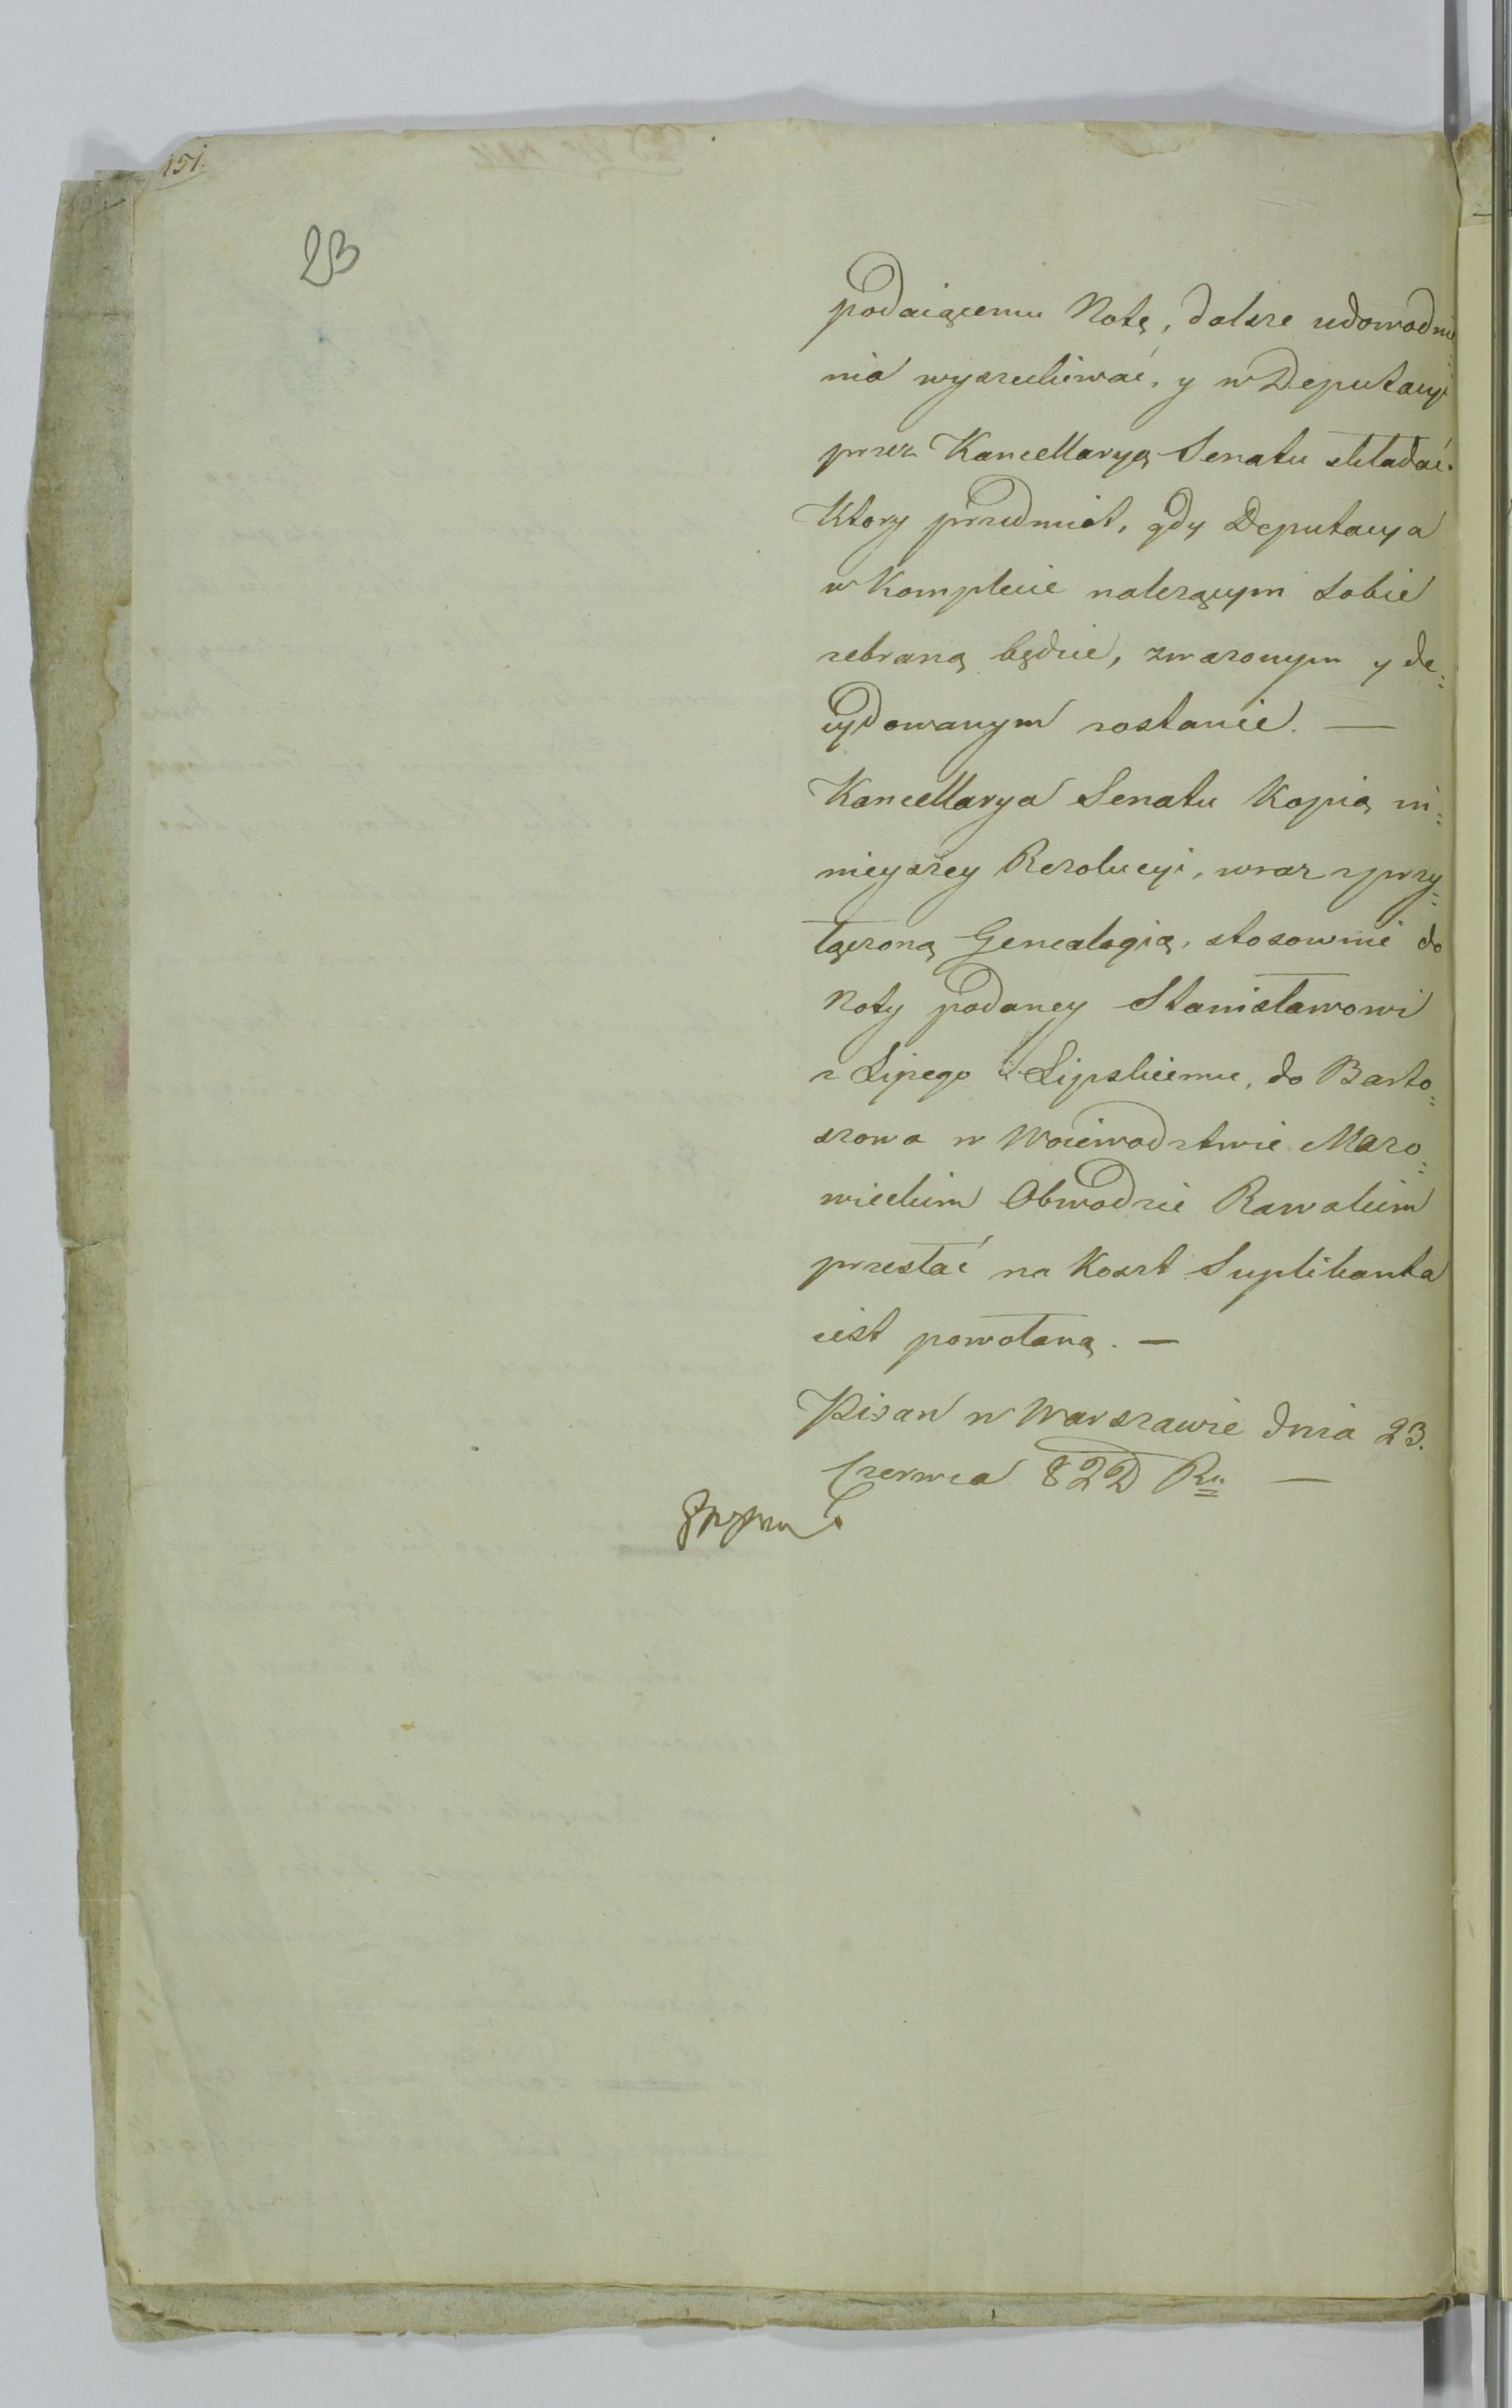 151.
23
podaiącemu Notę, dalsze udowodnie=
nia wyszukiwać, y w Deputacyi
przez Kancellaryą Senatu składać.
Ktory przedmiot, gdy Deputacya
w Komplecie należącym sobie
zebraną będzie, zważonym y de=
cydowanym zostanie. —
Kancellarya Senatu Kopią ni=
nieyszey Rezolucyi, wraz z przy=
łączoną Genealogią, stosownie do
Noty podaney Stanisławowi
z Lipego Lipskiemu, do Barto=
szowa w Woiewodztwie Mazo=
wieckim Obwodzie Rawskim
przesłać na Koszt Suplikanta
iest powołaną. —
Pisan w Warszawie dnia 23.
Czerwca 822 Ru —